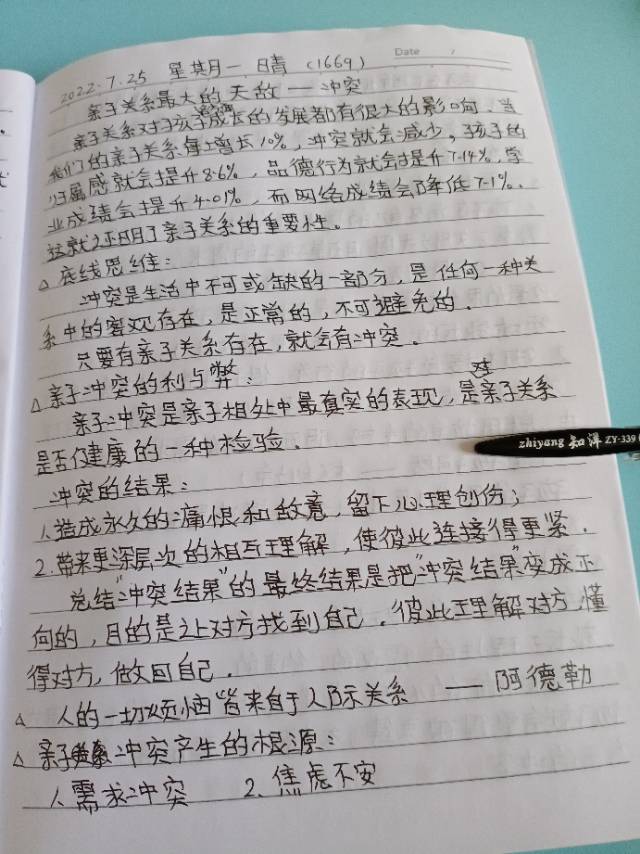 Date
2022.7.25 星期一 晴 (1669)
亲子关系最大的天敌——冲突
亲子关系对于孩子成长的发展都有很大的影响。当
我们的亲子关系每增长10%,冲突就会减少,孩子的
归属感就会提升8.6%,品德行为就会提升7.14%,学
业成绩会提升4.01%,而网络成绩会降低7.1%.
这就证明了亲子关系的重要性。
△ 底线思维:
冲突是生活中不可或缺的一部分,是任何一种关
系中的客观存在,是正常的,不可避免的.
只要有亲子关系存在,就会有冲突.
△ 亲子冲突的利与弊:
亲子冲突是亲子相处中最真实的表现,是对亲子关系
是否健康的一种检验.
冲突的结果:
1.造成永久的痛恨和敌意,留下心理创伤;
2.带来更深层次的相互理解,使彼此连接得更紧.
总结“冲突结果”的最终结果是把“冲突结果”变成正
向的,目的是让对方找到自己.彼此理解对方,懂
得对方,做回自己.
△ 人的一切烦恼皆来自于人际关系 —— 阿德勒
△ 亲子冲突产生的根源:
1.需求冲突 2.焦虑不安
zhiyang 知洋 ZY-339